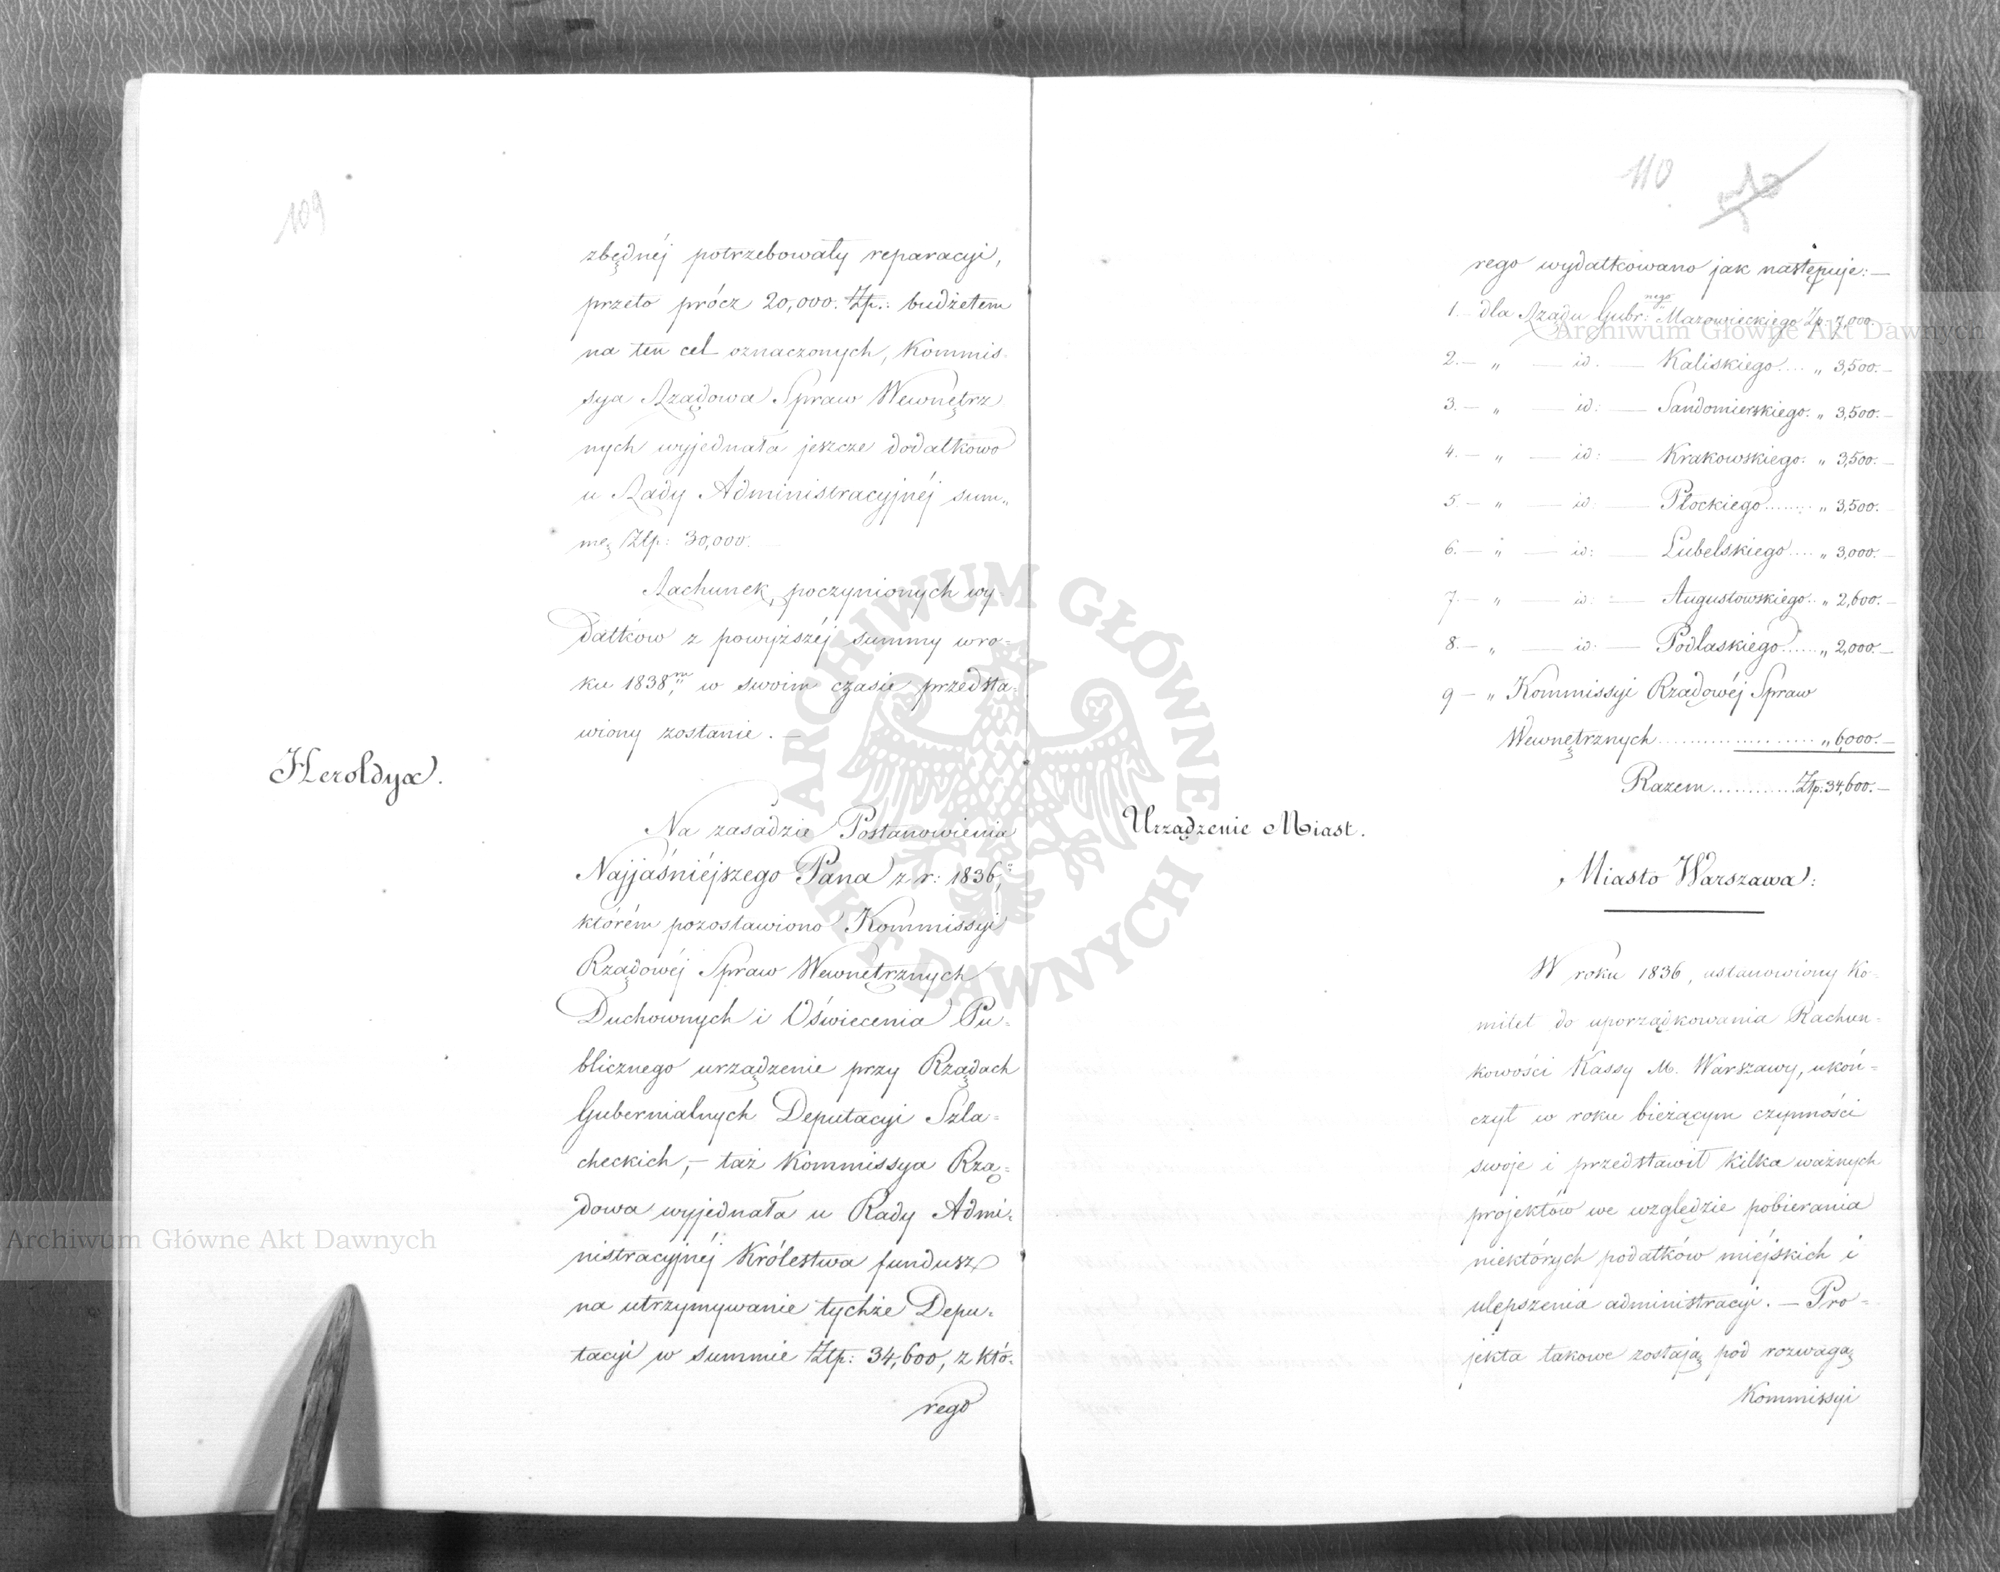 109
zbędnéj potrzebowały reparacyi,
przeto prócz 20,000. Złp.: budżetem
na ten cel oznaczonych, Kommis-
sya Rządowa Spraw Wewnętrz
nych wyjednała jeszcze dodatkowo
u Rady Administracyjnéj sum„
mę Złp: 30,000. —
Rachunek, poczynionych wy-
datków z powyższéj summy w ro-
ku 1838,m w swoim czasie przedsta-
wiony zostanie. —
Heroldya.
Na zasadzie Postanowienia
Najjaśniéjszego Pana z r: 1836,
którém pozostawiono Kommissyi
Rządowéj Spraw Wewnętrznych
Duchownych i Oświecenia Pu-
blicznego urządzenie przy Rządach
Gubernialnych Deputacyi Szla-
checkich, — taż Kommissya Rzą-
dowa wyjednała u Rady Admi-
nistracyjnéj Królestwa fundusz
na utrzymywanie tychże Depu-
tacyi w summie Złp: 34,600, z któ-
rego
110
rego wydatkowano jak następuje: —
1. — dla Rządu Gubr:nego Mazowieckiego Złp: 7,000. —
2. — „ — id. — Kaliskiego .... „ 3,500. —
3. — „ — id: — Sandomierskiego. „ 3,500. —
4. — „ — id: — Krakowskiego: „ 3,500. —
5. — „ — id: — Płockiego ........ „ 3,500. —
6. — „ — id: — Lubelskiego .... „ 3,000. —
7. — „ — id: — Augustowskiego .. „ 2,600. —
8. — „ — id: — Podlaskiego ...... „ 2,000. —
9 — „ Kommissyi Rządowéj Spraw
Wewnętrznych .................... „ 6,000. —
Razem ............ Złp: 34,600. —
Urządzenie Miast.
Miasto Warszawa:
W roku 1836, ustanowiony Ko-
mitet do uporządkowania Rachun-
kowości Kassy M. Warszawy, ukoń-
czył w roku bieżącym czynności
swoje i przedstawił kilka ważnych
projektów we względzie pobierania
niektórych podatków miejskich i
ulepszenia administracyi. — Pro-
jekta takowe zostają pod rozwagą
Kommissyi
Archiwum Główne Akt Dawnych
Archiwum Główne Akt Dawnych
ARCHIWUM GŁÓWNE AKT DAWNYCH